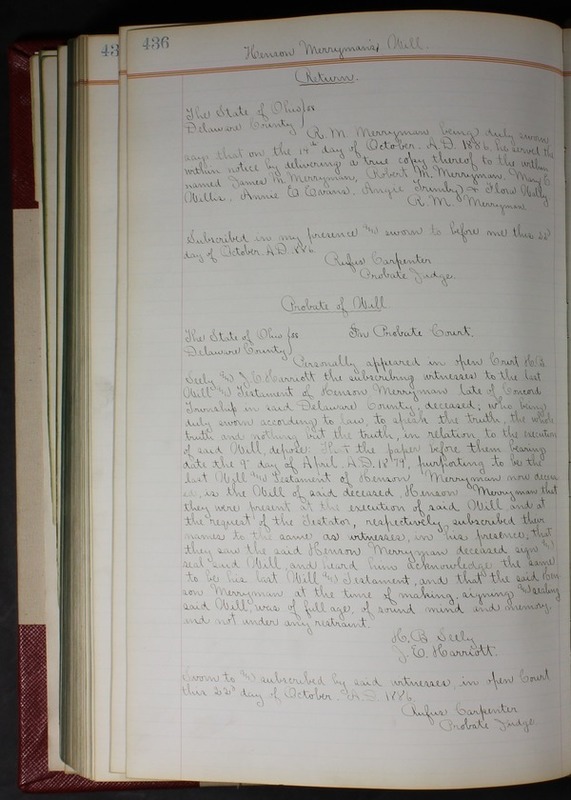 436
43
Henson Merryman's Will.
Return.
The State of Ohio } ss
Delaware County
R. M. Merryman being duly sworn
says that on the 14th day of October. A.D. 1886, he served the
within notice by delivering a true copy thereof to the within
named James M. Merryman, Robert M. Merryman. Mary E
Willis. Annie E Evans. Angie Trimby & Flora
R. M. Merryman
Subscribed in my presence and sworn to before me this 22d
day of October. A.D. 1886
Rufus Carpenter
Probate Judge.
Probate of Will
The State of Ohio } ss In Probate Court.
Delaware County
Personally appeared in open Court H. B.
Seely and J. E Harriott the subscribing witnesses to the last
Will and Testament of Henson Merryman late of Concord
Township in said Delaware County; deceased; who being
duly sworn according to law, to speak the truth, the whole
truth and nothing but the truth, in relation to the execution
of said Will, depose: That the paper before them bearing
date the 9" day of April. A.D. 1879, purporting to be the
last Will and Testament of Henson Merryman now deceas
ed, is the Will of said deceased, Henson Merryman that
they were present at the execution of said Will and at
the request of the Testator, respectively, subscribed their
names to the same as witnesses, in his presence; that
they saw the said Henson Merryman deceased sign and
seal said Will, and heard him acknowledge the same
to be his last Will and Testament, and that the said Hen
son Merryman at the time of making, signing and sealing
said Will, was of full age, of sound mind and memory,
and not under any restraint.
H. B Seely
J. E. Harriott.
Sworn to and subscribed by said witnesses, in open Court
this 22d day of October. A.D. 1886.
Rufus Carpenter
Probate Judge.